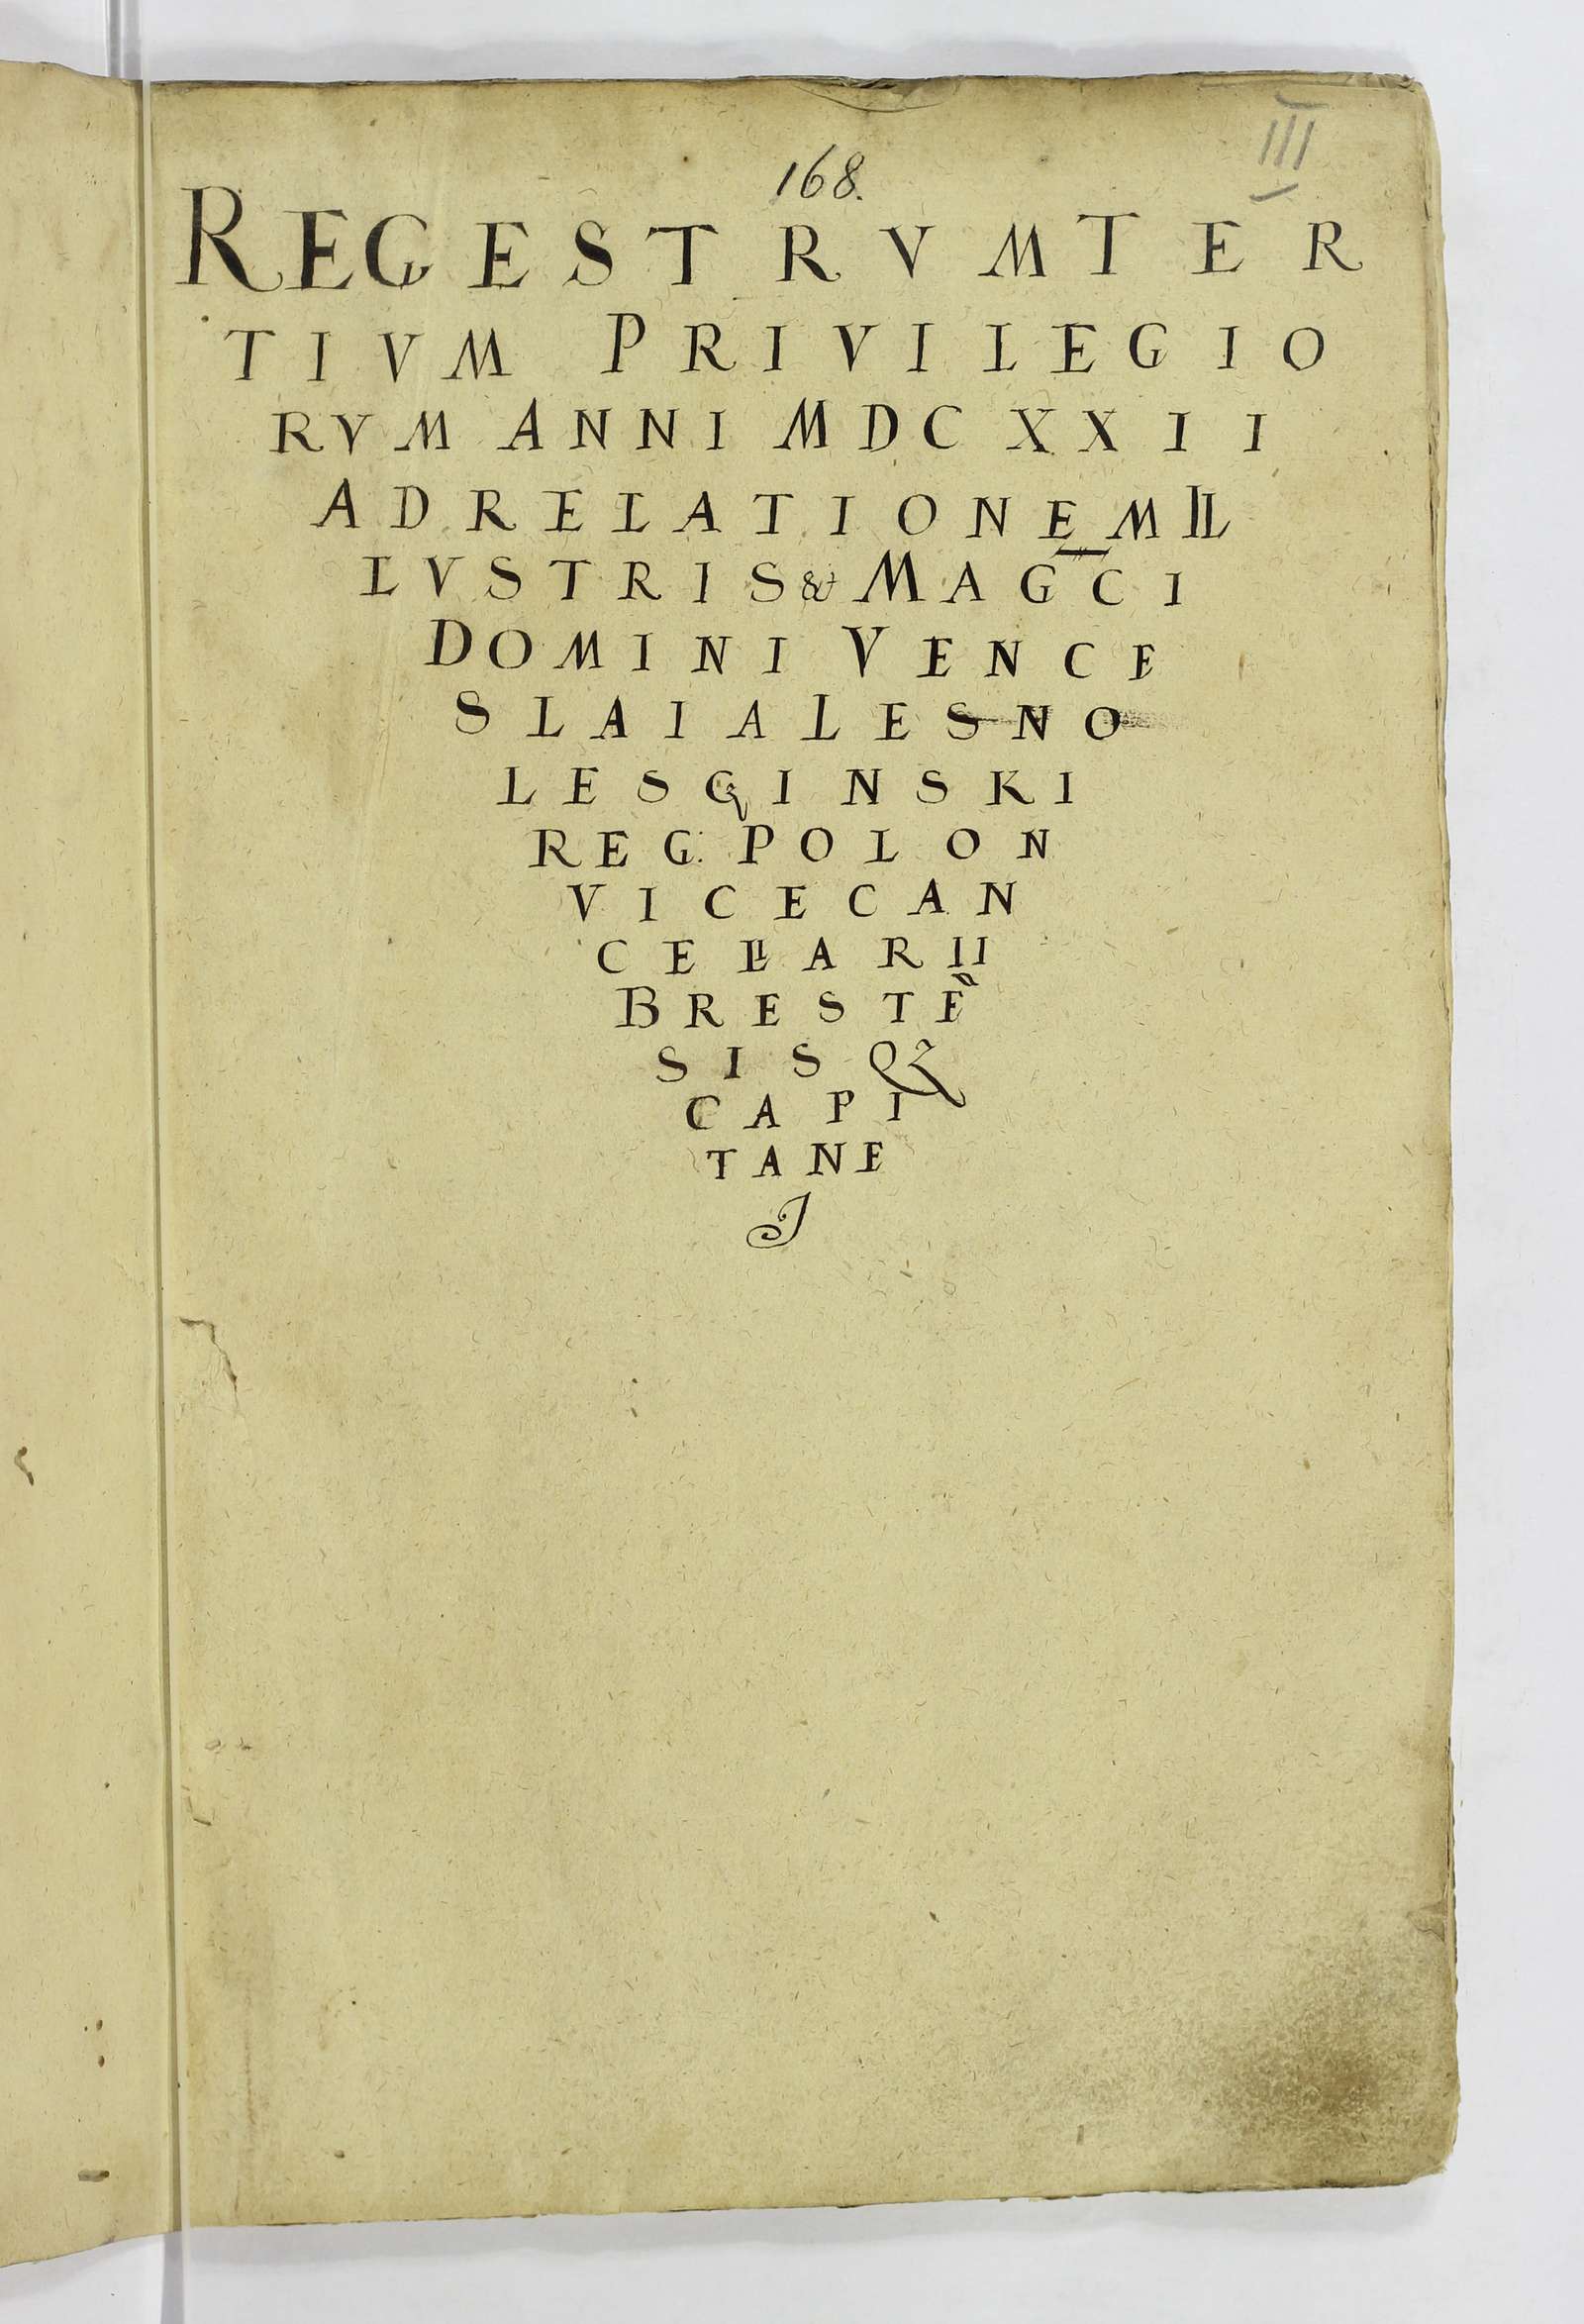 III
168.
REGESTRVM TER
TIVM PRIVILEGIO
RVM ANNI MDCXXII
AD RELATIONEM IL
LVSTRIS & MAGCI
DOMINI VENCE
SLAI A LESNO
LESCZINSKI
REG: POLON
VICECAN
CELLARII
BRESTẼ
SIS Qz
CAPI
TANE
J